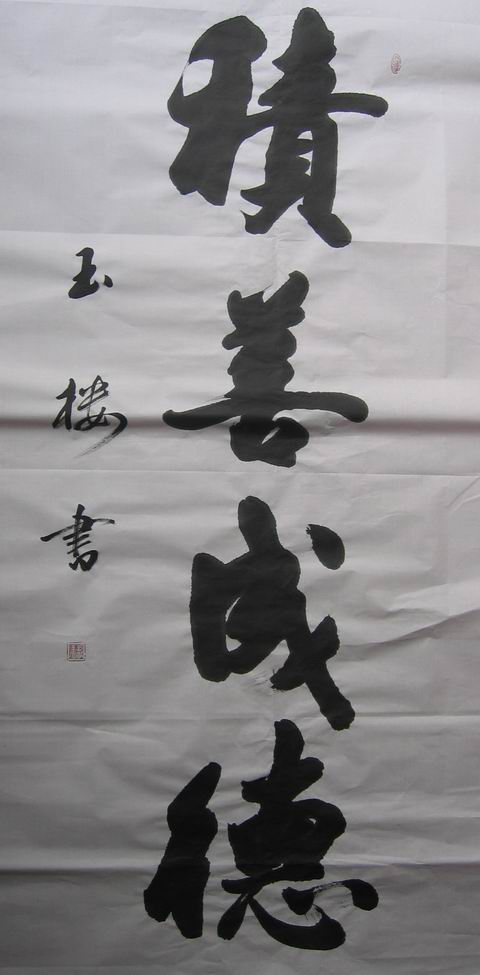 積善成德
玉楼書